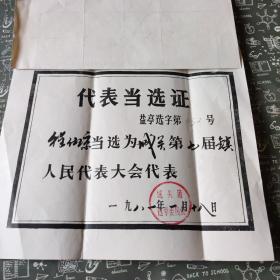 代表当选证
盐亭选字第 号
当选为城关第七届镇
人民代表大会代表
一九八一年一月十八日